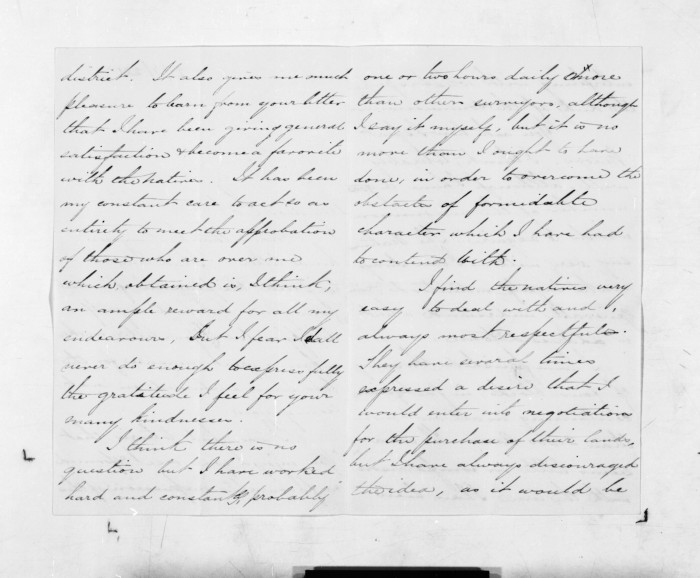 district. It also gives me much
pleasure to learn from your letter
that I have been giving general
satisfaction & become a favorite
with the natives. It has been
my constant care to act so as
entirely to meet the approbation
of those who are over me
which obtained is, I think,
an ample reward for all my
endeavours, But I fear I shall
never do enough to express fully
the gratitude I feel for your
many kindnesses.
I think there is no
question but I have worked
hard and constantly, probably
one or two hours daily more
than other surveyors, although
I say it myself, but it is no
more than I ought to have
done, in order to overcome the
obstacles of formidable
character which I have had
to contend with.
I find the natives very
easy to deal with and,
always most respectful.
They have several times
expressed a desire that I
would enter into negotiations
for the purchase of their lands,
but I have always discouraged
the idea, as it would be